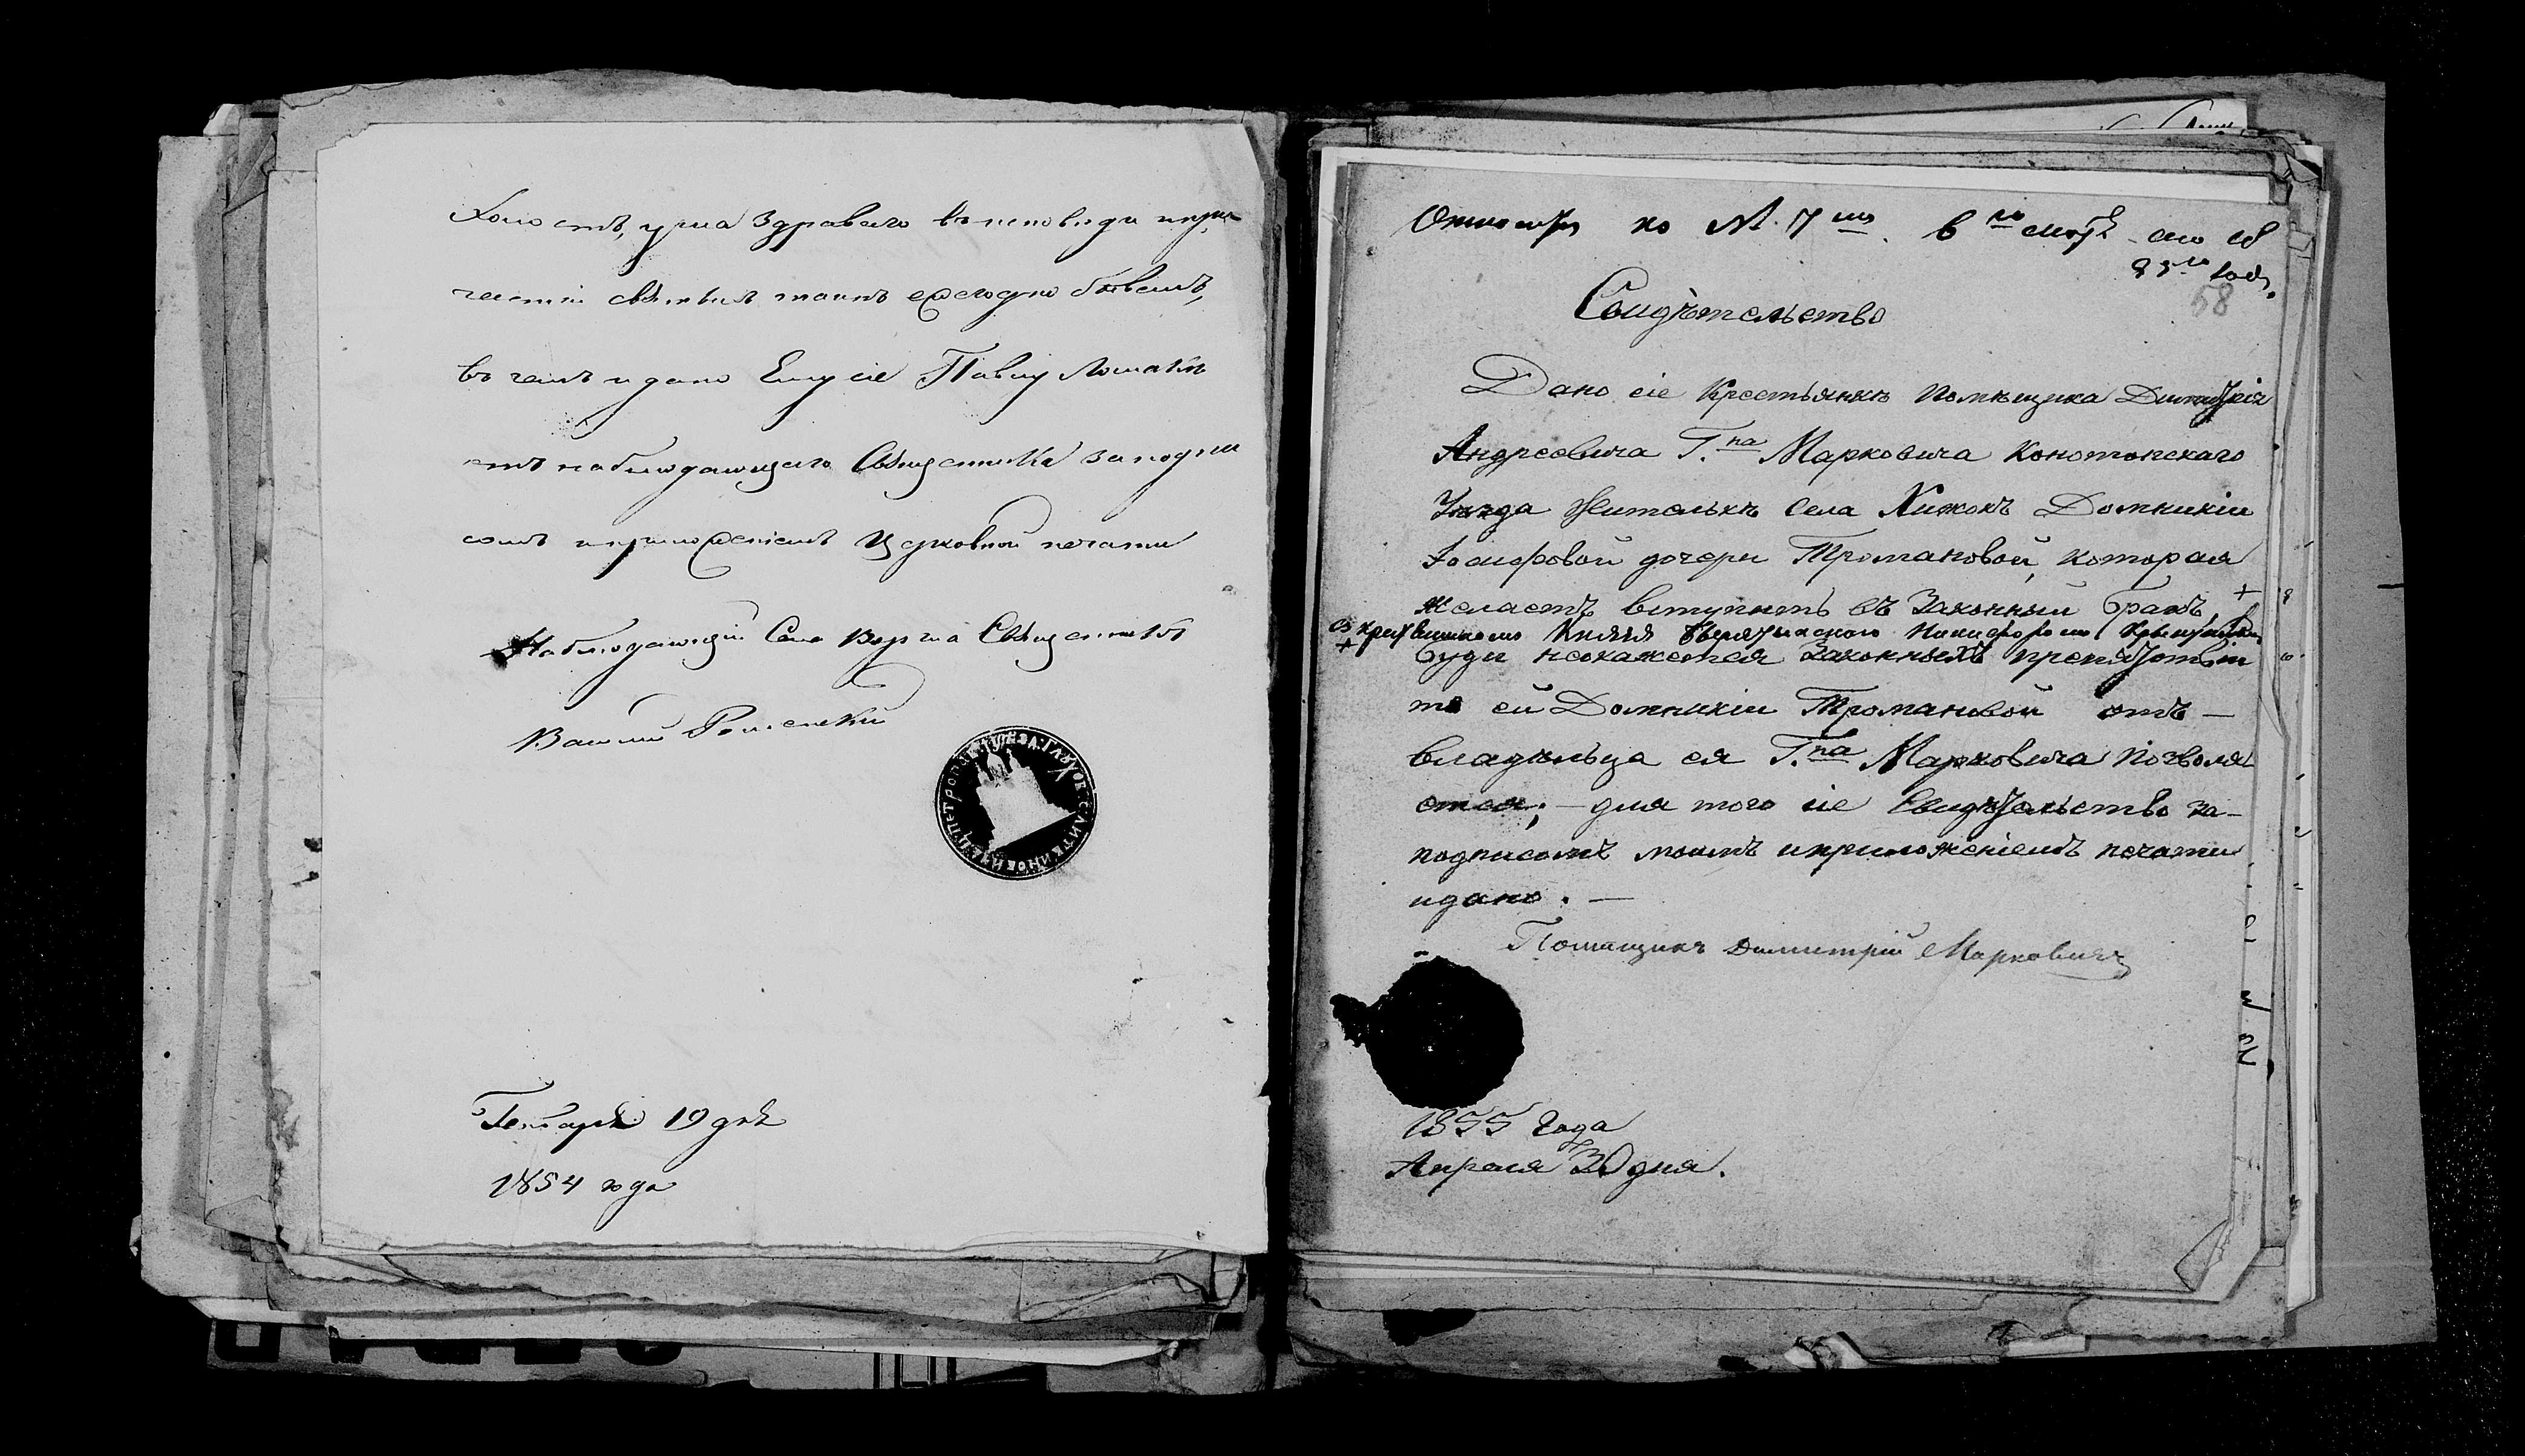 Холостъ, ума здраваго въ исповѣди и при
частіи святыхъ таинъ ежегодно бываетъ,
въ чемъ и дано Ему сіе Павлу
отъ наблюдающаго Священника за подпи
сомъ и приложеніемъ Церковной печати
Наблюдающій Села Священникъ
Василій
Генваря 19 дня
1854 года
къ № 7
года
58
Свидѣтельство
Дано сіе Крестьянкѣ Помѣщика Димитрія
Андреевича Г.на Марковича Конотопскаго
Уѣзда Жителькѣ Села Хижокъ Домникіи
Іосифовой дочери Тромановой, которая
желаетъ вступить въ Законный бракъ +
+ Князя Никифоромъ
буди неокажется Законныхъ препятствій
то ей Домникіи Тромановой отъ —
владѣльца ея Г.на Марковича позволя
ется; — для того сіе Свидѣтельство за-
подписомъ моимъ и приложеніемъ печати
и дано. —
Помещикъ Димитрій Марковичъ
1855 Года
Апреля 30 дня.